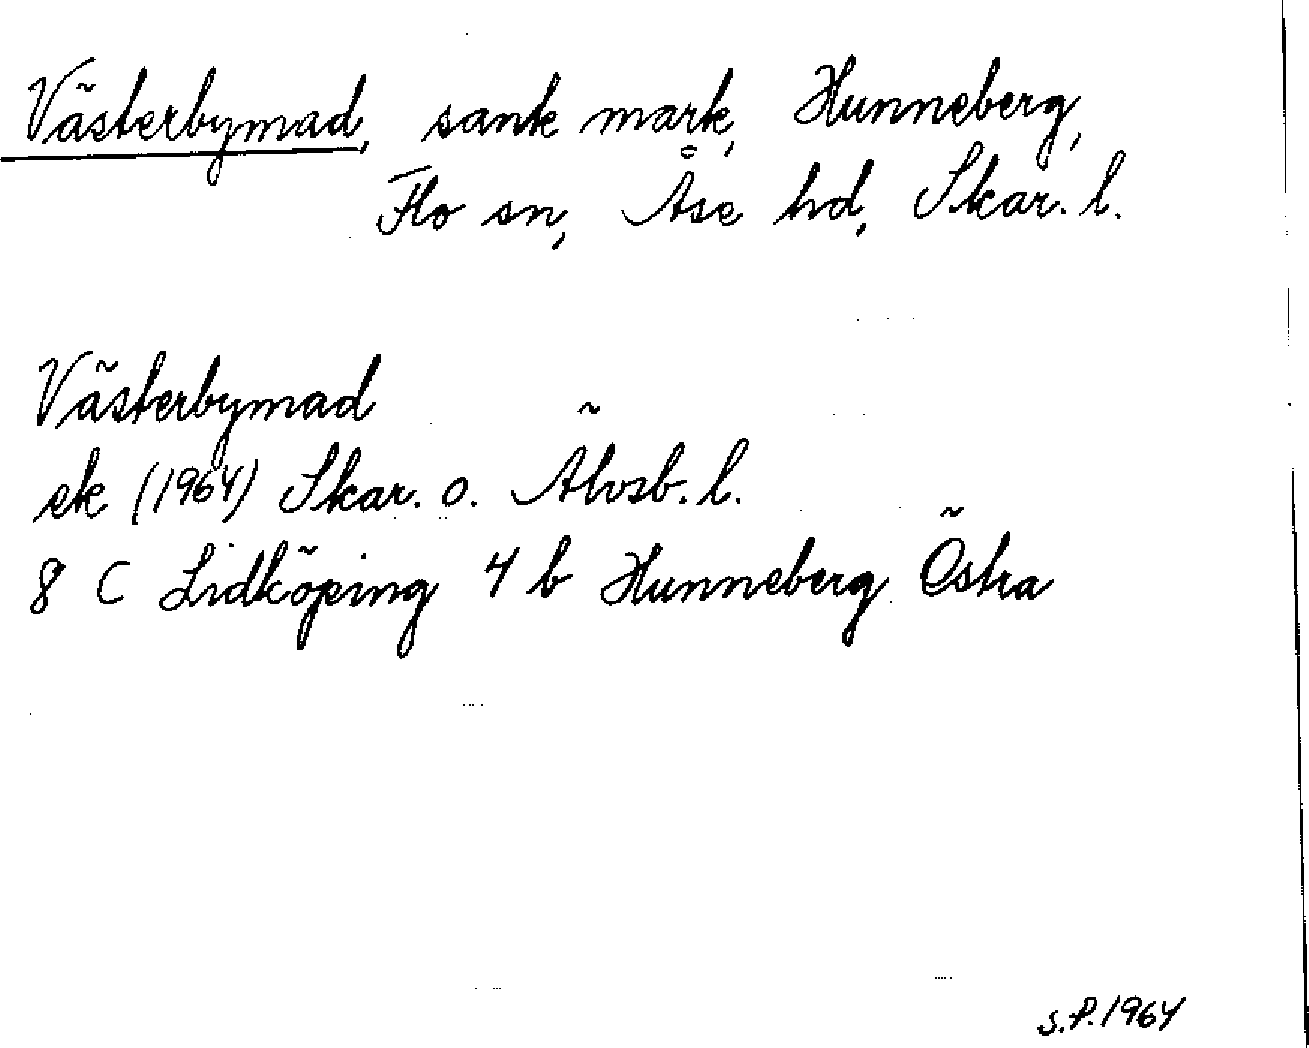 Västerbymad, sank mark, Hunneberg,
Flo sn, Åse hd, Skar. l.
Västerbymad
ek (1964) Skar. o. Älvsb. l.
8 C Lidköping 4 b Hunneberg Östra
S.P. 1964